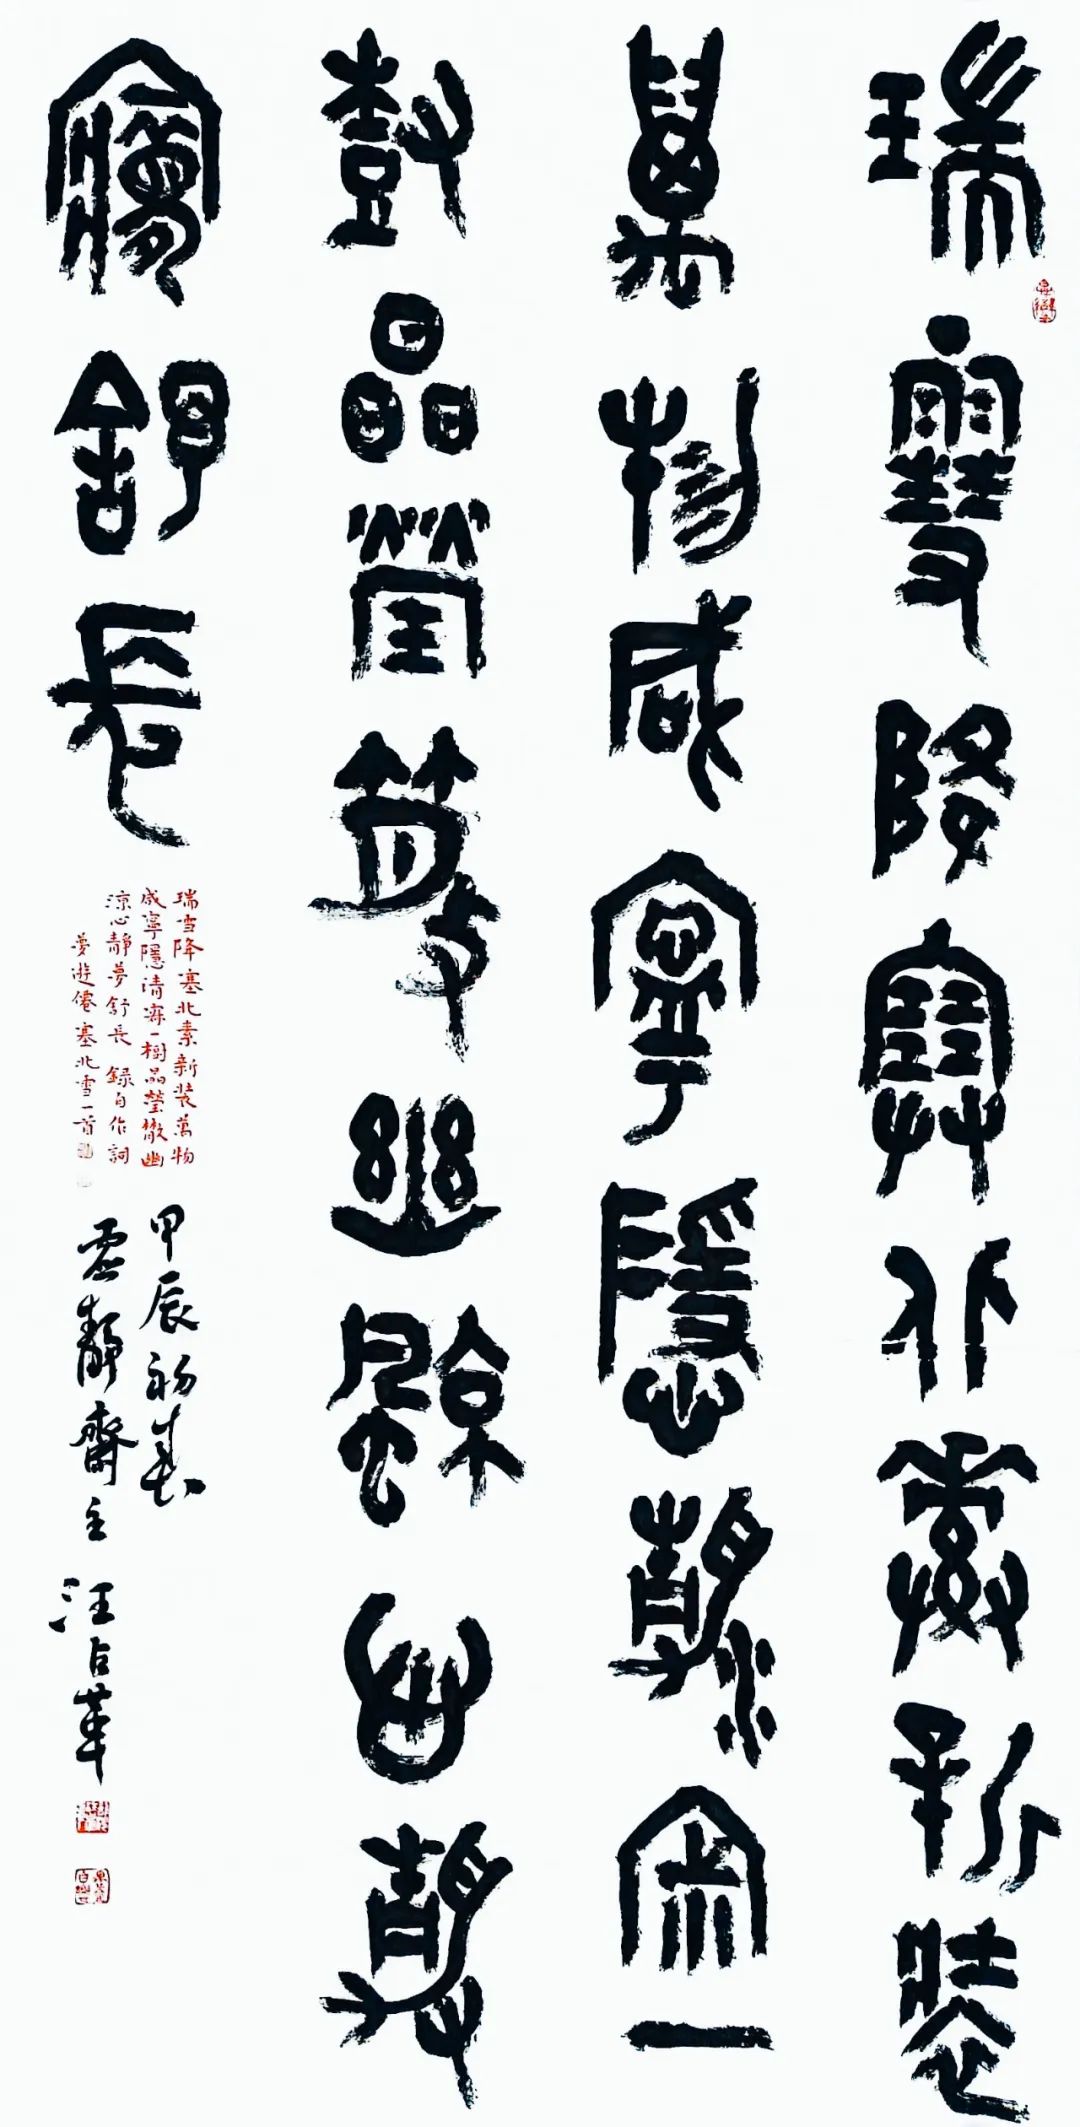 瑞雪降塞北素新裝
萬物咸寧隱清寂一
樹晶瑩撒幽涼心靜
夢舒長
瑞雪降塞北素新裝萬物
咸寧隱清寂一樹晶瑩撒幽
涼心靜夢舒長 錄自作詞
夢遊僊塞北雪一首
甲辰初春
虛靜齋主 汪占革